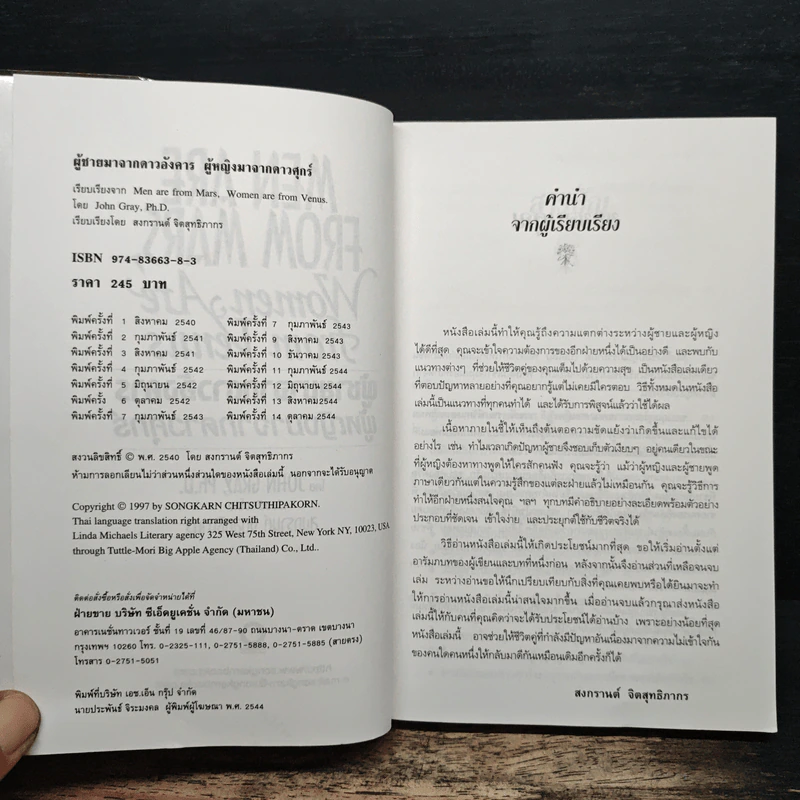 ผู้ชายมาจากดาวอังคาร ผู้หญิงมาจากดาวศุกร์
เรียบเรียงจาก Men are from Mars, Women are from Venus.
โดย John Gray, Ph.D.
เรียบเรียงโดย สงกรานต์ จิตสุทธิภากร
ISBN 974-83663-8-3
ราคา 245 บาท
พิมพ์ครั้งที่ 1 สิงหาคม 2540
พิมพ์ครั้งที่ 2 กุมภาพันธ์ 2541
พิมพ์ครั้งที่ 3 สิงหาคม 2541
พิมพ์ครั้งที่ 4 กุมภาพันธ์ 2542
พิมพ์ครั้งที่ 5 มิถุนายน 2542
พิมพ์ครั้ง 6 ตุลาคม 2542
พิมพ์ครั้งที่ 7 กุมภาพันธ์ 2543
พิมพ์ครั้งที่ 7 กุมภาพันธ์ 2543
พิมพ์ครั้งที่ 9 สิงหาคม 2543
พิมพ์ครั้งที่ 10 ธันวาคม 2543
พิมพ์ครั้งที่ 11 กุมภาพันธ์ 2544
พิมพ์ครั้งที่ 12 มิถุนายน 2544
พิมพ์ครั้งที่ 13 สิงหาคม2544
พิมพ์ครั้งที่ 14 ตุลาคม 2544
สงวนลิขสิทธิ์ © พ.ศ. 2540 โดย สงกรานต์ จิตสุทธิภากร
ห้ามการลอกเลียนไม่ว่าส่วนหนึ่งส่วนใดของหนังสือเล่มนี้ นอกจากจะได้รับอนุญาต
Copyright © 1997 by SONGKARN CHITSUTHIPAKORN.
Thai language translation right arranged with
Linda Michaels Literary agency 325 West 75th Street, New York NY, 10023, USA
through Tuttle-Mori Big Apple Agency (Thailand) Co., Ltd..
ติดต่อสั่งซื้อหรือสั่งเพื่อจัดจำหน่ายได้ที่
ฝ่ายขาย บริษัท ซีเอ็ดยูเคชั่น จำกัด (มหาชน)
อาคารเนชั่นทาวเวอร์ ชั้นที่ 19 เลขที่ 46/87-90 ถนนบางนา-ตราด เขตบางนา
กรุงเทพฯ 10260 โทร. 0-2325-111, 0-2751-5888, 0-2751-5885 (สายตรง)
โทรสาร 0-2751-5051
พิมพ์ที่บริษัท เอช.เอ็น กรุ๊ป จำกัด
นายประพันธ์ จิระมงคล ผู้พิมพ์ผู้โฆษณา พ.ศ. 2544
คำนำ
จากผู้เรียบเรียง
หนังสือเล่มนี้ทำให้คุณรู้ถึงความแตกต่างระหว่างผู้ชายและผู้หญิง
ได้ดีที่สุด คุณจะเข้าใจความต้องการของอีกฝ่ายหนึ่งได้เป็นอย่างดี และพบกับ
แนวทางต่างๆ ที่ช่วยให้ชีวิตคู่ของคุณเต็มไปด้วยความสุข เป็นหนังสือเล่มเดียว
ที่ตอบปัญหาหลายอย่างที่คุณอยากรู้แต่ไม่เคยมีใครตอบ วิธีทั้งหมดในหนังสือ
เล่มนี้เป็นแนวทางที่ทุกคนทำได้ และได้รับการพิสูจน์แล้วว่าใช้ได้ผล
เนื้อหาภายในชี้ให้เห็นถึงต้นตอความขัดแย้งว่าเกิดขึ้นและแก้ไขได้
อย่างไร เช่น ทำไมเวลาเกิดปัญหาผู้ชายจึงชอบเก็บตัวเงียบๆ อยู่คนเดียวในขณะ
ที่ผู้หญิงต้องหาทางพูดให้ใครสักคนฟัง คุณจะรู้ว่า แม้ว่าผู้หญิงและผู้ชายพูด
ภาษาเดียวกันแต่ในความรู้สึกของแต่ละฝ่ายแล้วไม่เหมือนกัน คุณจะรู้วิธีการ
ทำให้อีกฝ่ายหนึ่งสนใจคุณ ฯลฯ ทุกบทมีคำอธิบายอย่างละเอียดพร้อมตัวอย่าง
ประกอบที่ชัดเจน เข้าใจง่าย และประยุกต์ใช้กับชีวิตจริงได้
วิธีอ่านหนังสือเล่มนี้ให้เกิดประโยชน์มากที่สุด ขอให้เริ่มอ่านตั้งแต่
อารัมภบทของผู้เขียนและบทที่หนึ่งก่อน หลังจากนั้นจึงอ่านส่วนที่เหลือจนจบ
เล่ม ระหว่างอ่านขอให้นึกเปรียบเทียบกับสิ่งที่คุณเคยพบหรือได้ยินมาจะทำ
ให้การอ่านหนังสือเล่มนี้น่าสนใจมากขึ้น เมื่ออ่านจบแล้วกรุณาส่งหนังสือ
เล่มนี้ให้กับคนที่คุณคิดว่าจะได้รับประโยชน์ได้อ่านบ้าง เพราะอย่างน้อยที่สุด
หนังสือเล่มนี้ อาจช่วยให้ชีวิตคู่ที่กำลังมีปัญหาอันเนื่องมาจากความไม่เข้าใจกัน
ของคนใดคนหนึ่งให้กลับมาดีกันเหมือนเดิมอีกครั้งก็ได้
สงกรานต์ จิตสุทธิภากร